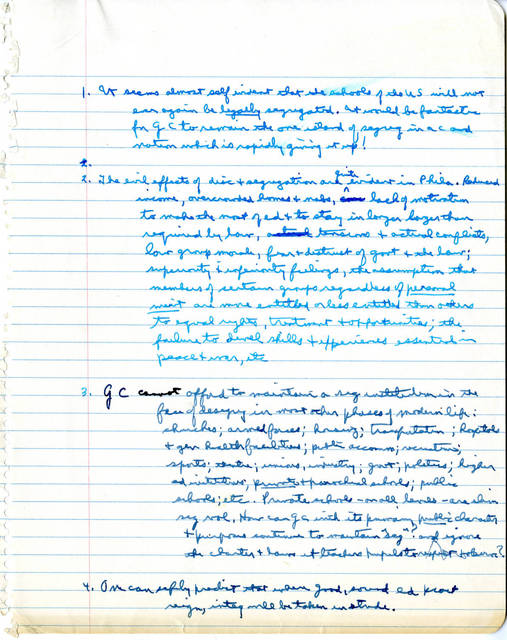 1. It seems almost self evident that the schools of the US will not
ever again be legally segregated. It would be fantastic
for G C to remain the one island of segreg in a C and
nation which is rapidly giving it up!
2.
2. The evil effects of disc & segregation are quite evident in Phila. Reduced
income, overcrowded homes & nebs, lack of motivation
to make the most of ed & to stay in longer than
required by law, tensions & actual conflicts,
low group morale, fear & distrust of govt & the law;
superiority & inferiority feelings, the assumption that
members of certain groups regardless of personal
merit are more entitled or less entitled than others
to equal rights, treatment & opportunities; the
failure to devel skills & experiences essential in
peace & war, etc
3. G C cannot afford to maintain a seg institution in the
face of deseg in most other phases of modern life:
churches; armed forces; housing; transportation; hospitals
& gen health facilities; public accomo; recreation;
sports; theatre; unions, industry; govt; politics; higher
ed institutions, private & parochial schools; public
schools; etc. Private schools - all levels - are
How can GC with its primary public character
& purpose continue to maintain "seg"? and ignore
the charter & laws it teaches pupils to respect & observe?
4. One can safely predict that where good, sound ed
reign, integ will be taken in stride.